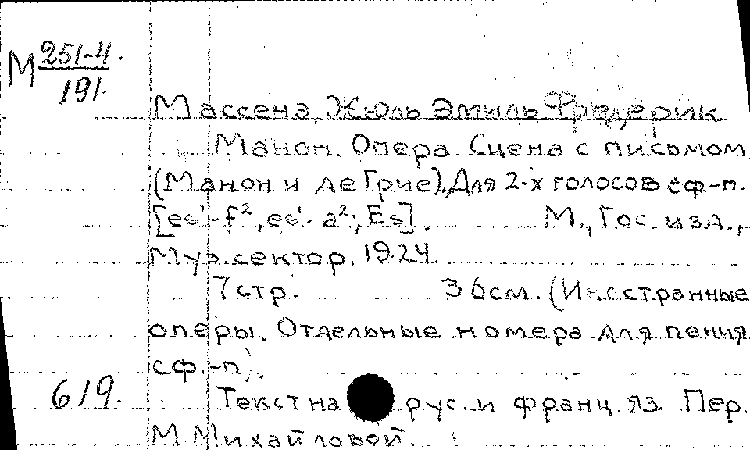 М 251-4
191.
Массена, Жюль Эмиль Фредерик
Манон. Опера. Сцена с письмом
(Манон и де Грие). Для 2-х голосов с ф-п.
[es¹-f², es¹-a²; Es]. М., Гос. изд.,
Муз. сектор, 1924
7 стр. 36 см. (Иностранные
оперы. Отдельные номера для пения
с ф.-п).
619. Текст на рус. и франц. яз. Пер.
М. Михайловой.